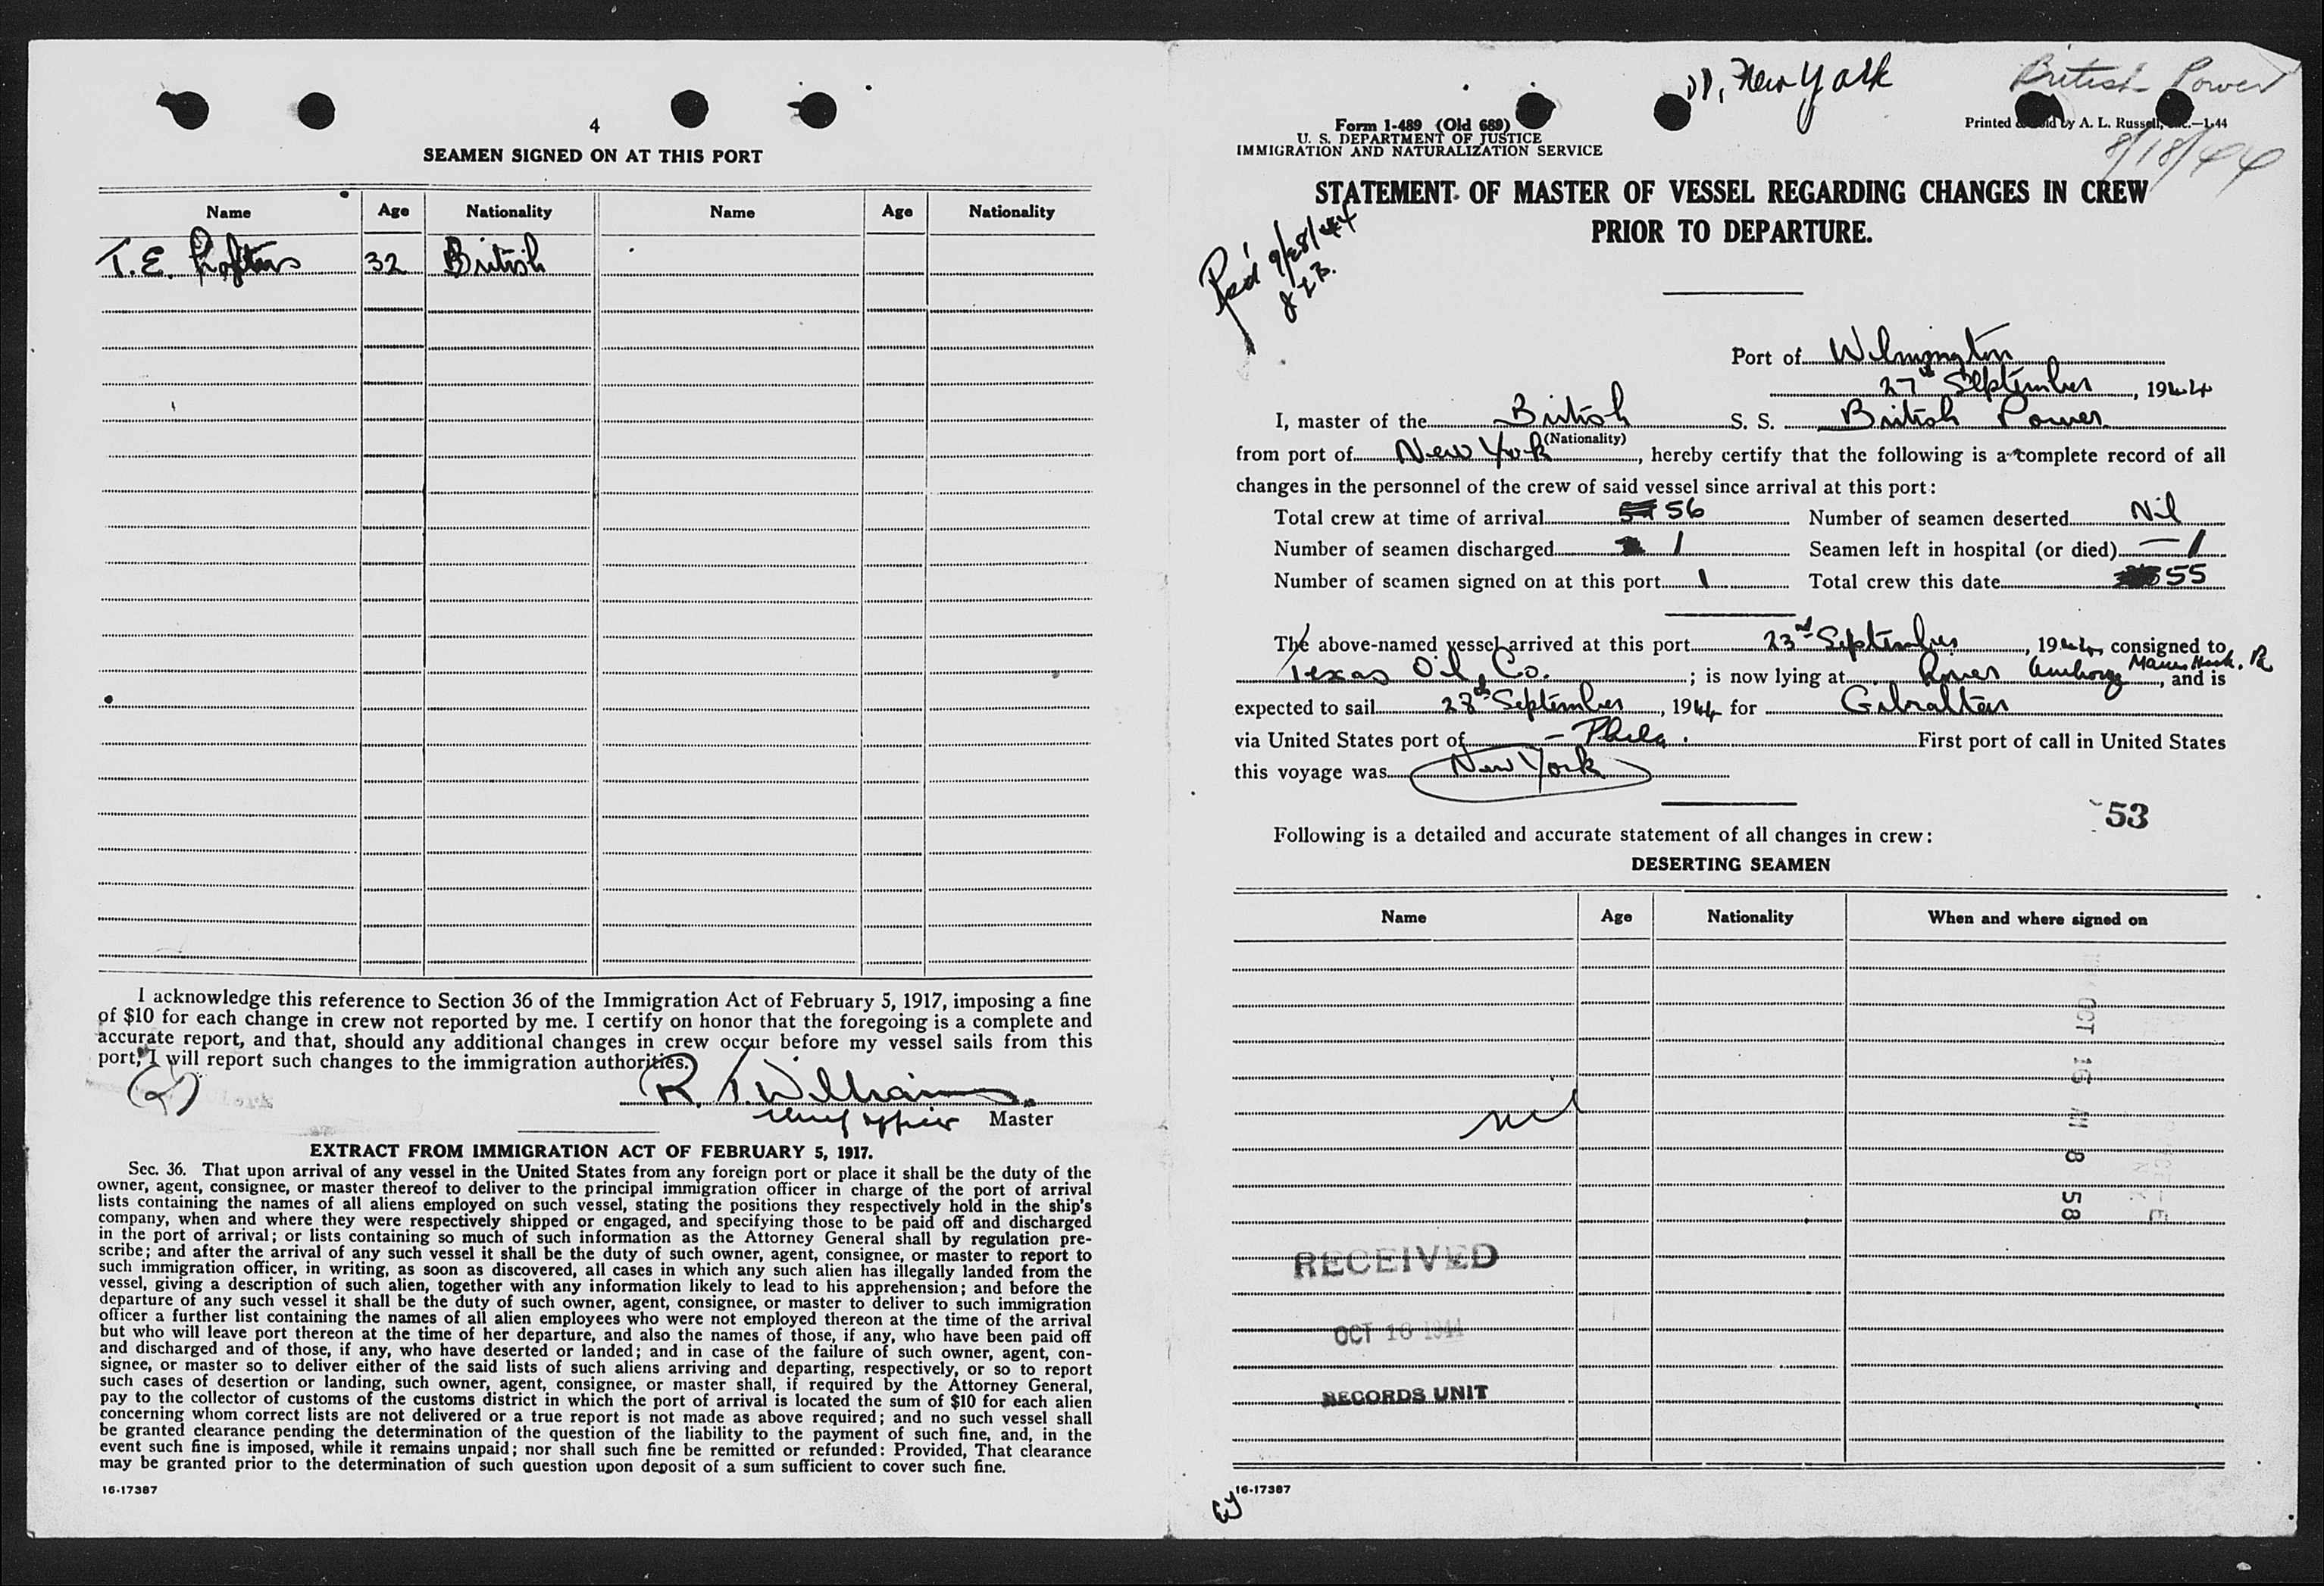 4
SEAMEN SIGNED ON AT THIS PORT
Name Age Nationality Name Age Nationality
T. E. 32 British
I acknowledge this reference to Section 36 of the Immigration Act of February 5, 1917, imposing a fine
of $10 for each change in crew not reported by me. I certify on honor that the foregoing is a complete and
accurate report, and that, should any additional changes in crew occur before my vessel sails from this
port, I will report such changes to the immigration authorities.
R. J. Williams
Chief Officer Master
EXTRACT FROM IMMIGRATION ACT OF FEBRUARY 5, 1917.
Sec. 36. That upon arrival of any vessel in the United States from any foreign port or place it shall be the duty of the
owner, agent, consignee, or master thereof to deliver to the principal immigration officer in charge of the port of arrival
lists containing the names of all aliens employed on such vessel, stating the positions they respectively hold in the ship's
company, when and where they were respectively shipped or engaged, and specifying those to be paid off and discharged
in the port of arrival; or lists containing so much of such information as the Attorney General shall by regulation pre-
scribe; and after the arrival of any such vessel it shall be the duty of such owner, agent, consignee, or master to report to
such immigration officer, in writing, as soon as discovered, all cases in which any such alien has illegally landed from the
vessel, giving a description of such alien, together with any information likely to lead to his apprehension; and before the
departure of any such vessel it shall be the duty of such owner, agent, consignee, or master to deliver to such immigration
officer a further list containing the names of all alien employees who were not employed thereon at the time of the arrival
but who will leave port thereon at the time of her departure, and also the names of those, if any, who have been paid off
and discharged and of those, if any, who have deserted or landed; and in case of the failure of such owner, agent, con-
signee, or master so to deliver either of the said lists of such aliens arriving and departing, respectively, or so to report
such cases of desertion or landing, such owner, agent, consignee, or master shall, if required by the Attorney General,
pay to the collector of customs of the customs district in which the port of arrival is located the sum of $10 for each alien
concerning whom correct lists are not delivered or a true report is not made as above required; and no such vessel shall
be granted clearance pending the determination of the question of the liability to the payment of such fine, and, in the
event such fine is imposed, while it remains unpaid; nor shall such fine be remitted or refunded: Provided, That clearance
may be granted prior to the determination of such question upon deposit of a sum sufficient to cover such fine.
16-17387
New York
British Power
8/18/44
Form I-489 (Old 689)
U. S. DEPARTMENT OF JUSTICE
IMMIGRATION AND NATURALIZATION SERVICE
Printed by A. L. Russell, —1-44
STATEMENT OF MASTER OF VESSEL REGARDING CHANGES IN CREW
PRIOR TO DEPARTURE.
Rec'd 9/28/44
Port of Wilmington
27th September, 1944
I, master of the British S. S. British Power
(Nationality)
from port of New York, hereby certify that the following is a complete record of all
changes in the personnel of the crew of said vessel since arrival at this port:
Total crew at time of arrival 56 Number of seamen deserted Nil
Number of seamen discharged 1 Seamen left in hospital (or died) — 1
Number of seamen signed on at this port 1 Total crew this date 55
The above-named vessel arrived at this port 23rd September, 1944, consigned to
Texas Oil Co.; is now lying at River Anchorage Marcus Hook, Pa, and is
expected to sail 28th September, 1944 for Gibraltar
via United States port of - Phila. First port of call in United States
this voyage was New York
53
Following is a detailed and accurate statement of all changes in crew:
DESERTING SEAMEN
Name Age Nationality When and where signed on
nil
OCT 16 AM 8 58
RECEIVED
OCT 16 1944
RECORDS UNIT
16-17387